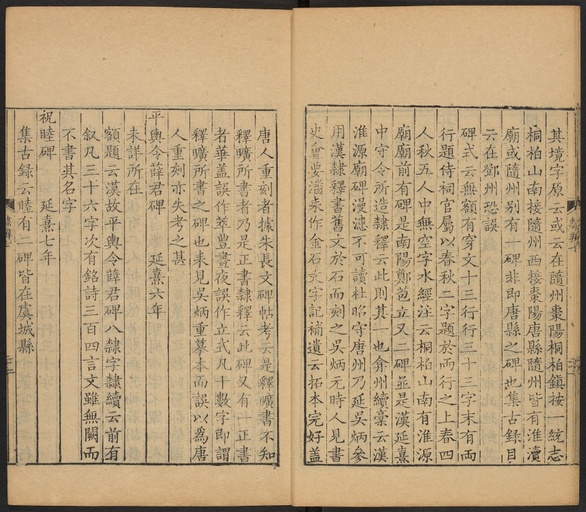 其境字原云或云在隨州棗陽桐柏鎮按一統志
桐柏山南接隨州西接棗陽唐縣隨州皆有淮瀆
廟或隨州别有一碑非即唐縣之碑也集古錄目
云在鄧州恐誤
碑式云無額有穿文十三行行三十三字末有兩
行題侍祠官屬以春秋二字題於兩行之上春四
人秋五人中無空字水經注云桐柏山南有淮源
廟廟前有碑是南陽郭苞立又二碑並是漢延熹
中守令所造隸釋云此則其一也弇州續稾云漢
淮源廟碑漫滅不可讀杜昭守唐州乃延吳炳參
用漢隸釋書舊文於石而刻之吳炳元時人見書
史會要潘耒作金石文字記補遺云拓本完好蓋
唐人重刻者據朱長文碑帖考云是釋曠書不知
釋曠所書者乃是正書隸釋云此碑又有一正書
者華蓋誤作莖豊晝夜誤作立式凡十數字即謂
釋曠所書之碑也耒見吳炳重摹本而誤以為唐
人重刻亦失考之甚
平輿令薛君碑 延熹六年
未詳所在
額題云漢故平輿令薛君碑八隸字隸續云前有
叙凡三十六字次有銘詩三百四言文雖無闕而
不書其名字
祝睦碑 延熹七年
集古錄云睦有二碑皆在虞城縣